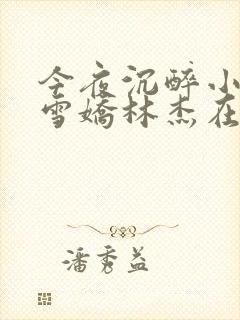 今夜沉醉小
雪嬌林杰在
潘秀益